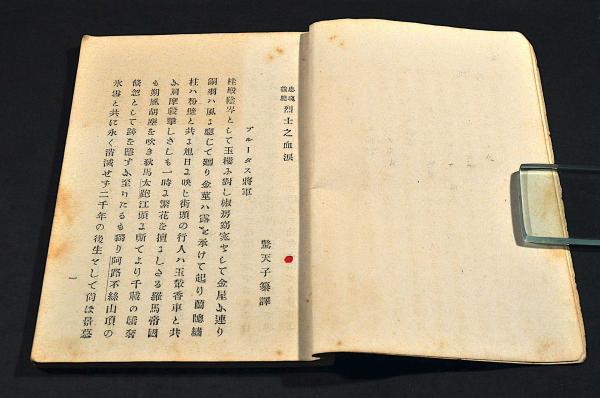 忠魂義膽 烈士之血涙
驚天子纂譯
ブルータス將軍
桂殿陰岑として玉樓に對し椒房窈窕として金屋に連り
銅羽ハ風に應じて廻り金莖ハ露を承けて起り蘭牕繡
柱ハ粉壁と共に旭日に映し街頭の行人ハ玉輦香車と共
に肩摩轂撃しさしも一時に繁花を擅にしたる羅馬帝國
も朔風胡塵を吹き狄馬太跑江頭に嘶てより千載の驕奢
倏忽として跡を隱すに至りたるも獨り阿路不絲山頂の
氷雪と共に永く消滅せす二千年の後生をして尚ほ景慕
一